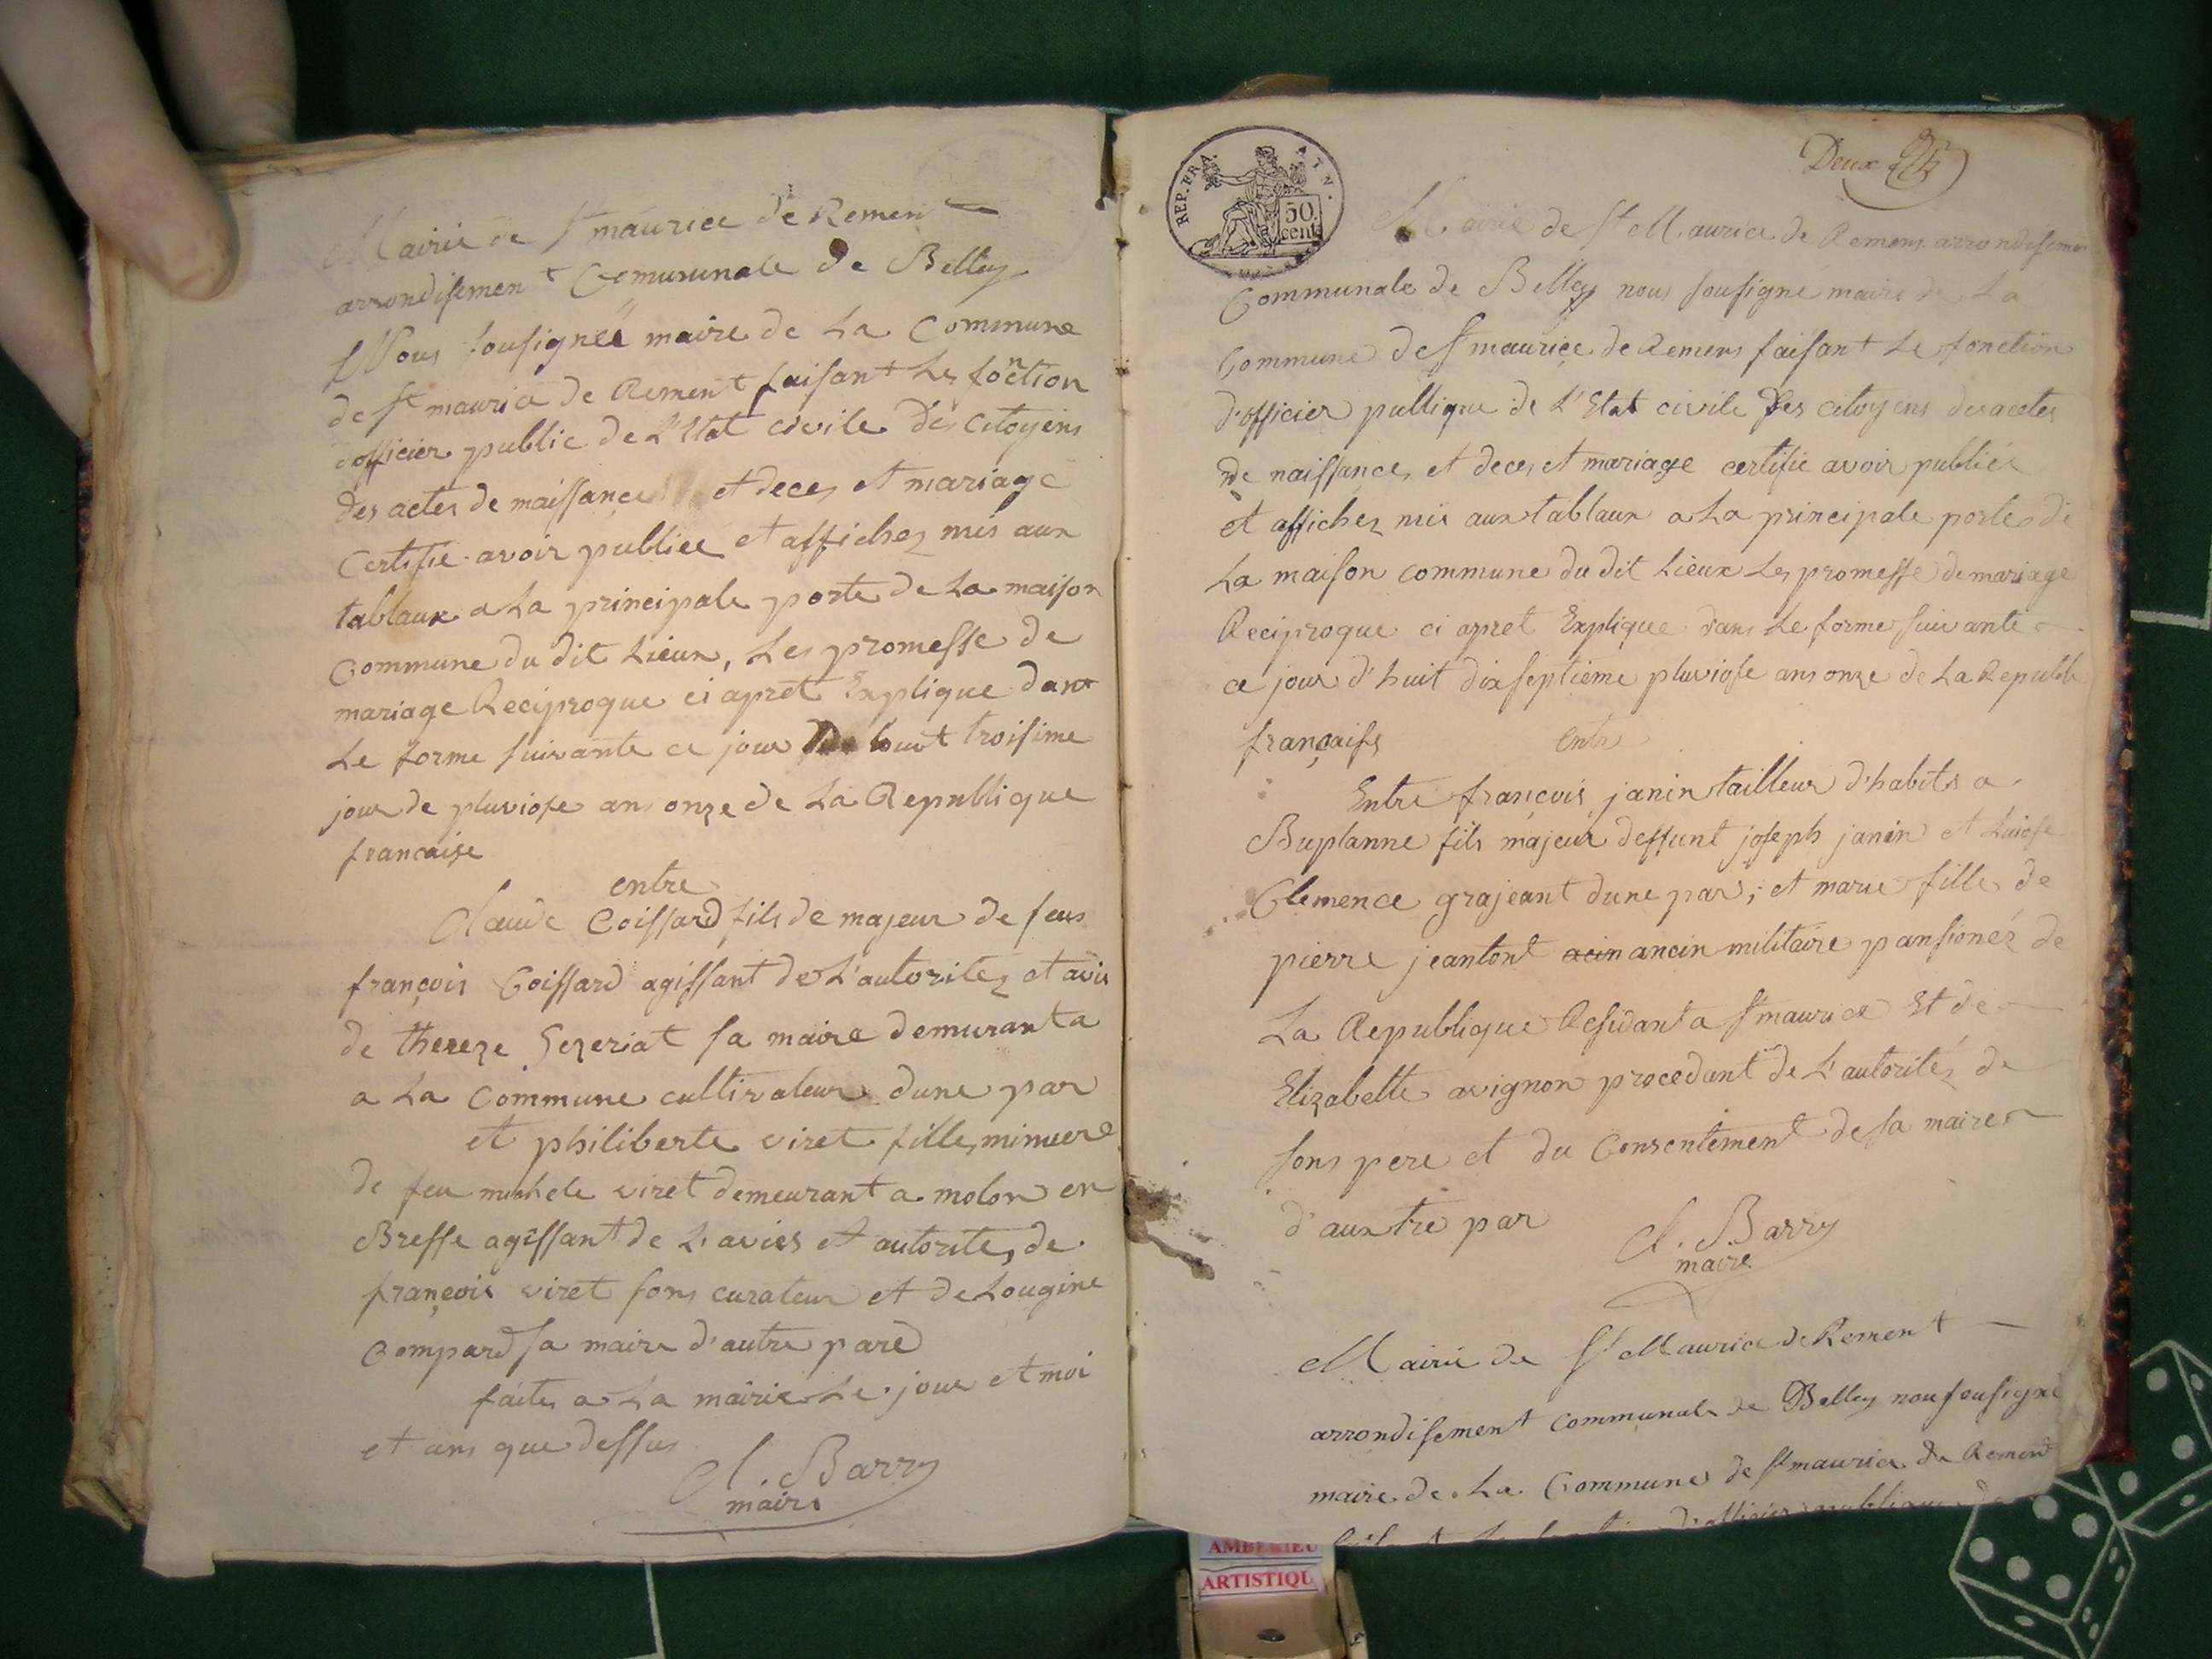 Mairie de St maurice de Remen
arrondisement Communale de Belley
Nous sousignéé maire de La Commune
de St maurice de Rement faisant Les fonction
dofficier public de L'Etat civile Des Citoyens
Des actes de maissance et deces et mariage
Certifie avoir publiee et affichez mis aux
tablaux a La principale porte de La maison
Commune du dit Lieux, Les promesse de
mariage Reciproque ci apret Explique dant
Le forme suivante ce jour huit troisime
jour de pluviose ans onze de La Republique
francaise
entre
Claude Coissard fils de majeur de feus
françois Coissard agissant de L'autoritez et avis
de thereze Sezeriat sa maire demurant a
a La Commune cultivateur dune par
et philiberte viret fille minuere
de feu michele viret demeurant a molon en
Bresse agissant de L'avies et autorite, de
françois viret sons curateur et de Lougine
Compard sa maire d'autre pare
faites a La mairie Le jour et moi
et ans que dessus
Cl. Barry
maire
Deux
REP. FRA. ATN.
50. cent
Mairie de St Maurice de Remens arrondisemen
Communale de Belley nous sousigné maire de La
Commune de St maurice de Remens faisant Le fonction
d'officier publique de L'Etat civile Des citoyens des actes
de naissances et deces et mariage certifie avoir publiée
et affichez mis aux tablaux a La principale porte de
La maison commune du dit Lieux Les promesse de mariage
Reciproque ci apret Explique dans Le forme suivante
ce jour d'huit dix septieme pluviose ans onze de La Republi
françaises
entre
Entre françois janin tailleur d'habits a
Buplanne fils majeur deffunt joseph janin et Luiese
Clemence grajeant dune par; et marie fille de
pierre jeantont acin ancin militaire pansionéz de
La Republique Residant a St maurice Et de
Elizabette avignon procedant de L'autoritéz de
sons pere et du Consentement de sa maire
d'auxtre par
Cl. Barry
maire
Mairie de St Maurice de Rement
arrondisement communale de Belley nous sousigné
maire de La Commune de St maurice de Rement
d'officier publique de
AMBERIEU
ARTISTIQU